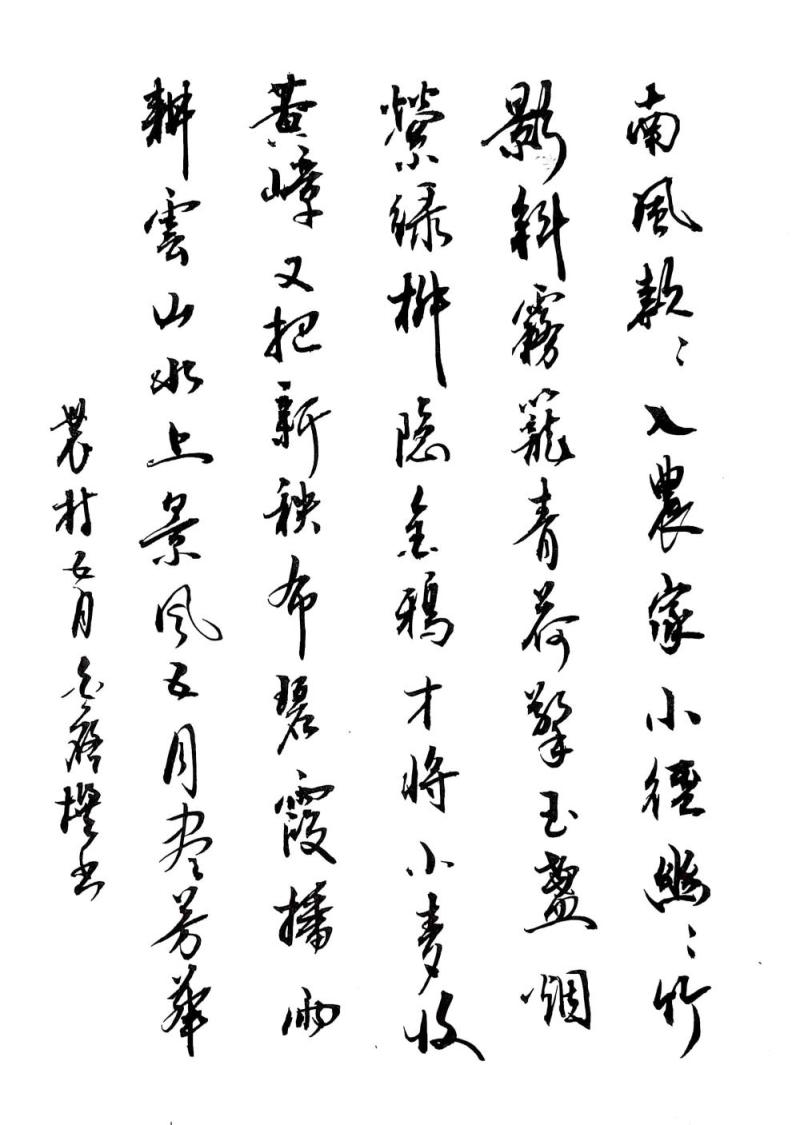 南風款々入農家小徑幽々竹
影斜霧籠青荷擎玉盞烟
縈绿柳隐金鴉才將小麦收
黄嶂又把新秧布碧霞播雨
耕雲山水上景风五月尽芳華
農村五月撰书